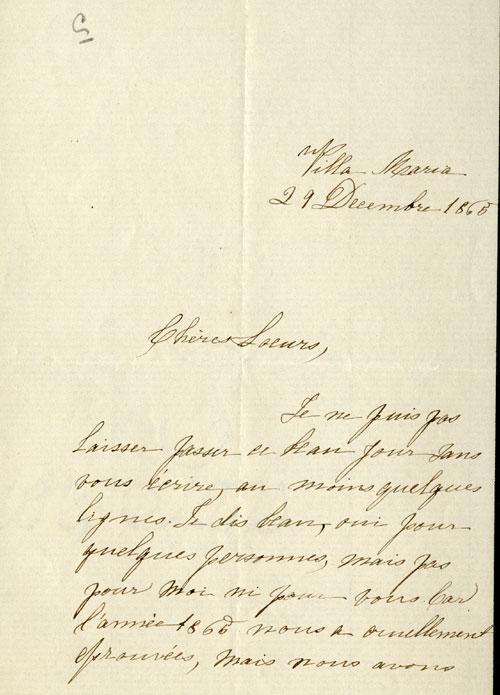 Villa Maria
29 Decembre 1865
Chères Soeurs,
Je ne puis pas
laisser passer ce beau jour sans
vous écrire, au moins quelques
lignes. Je dis beau, oui pour
quelques personnes, mais pas
pour moi ni pour vous Car
l'année 1865 nous a cruellement
éprouvées, mais nous avons